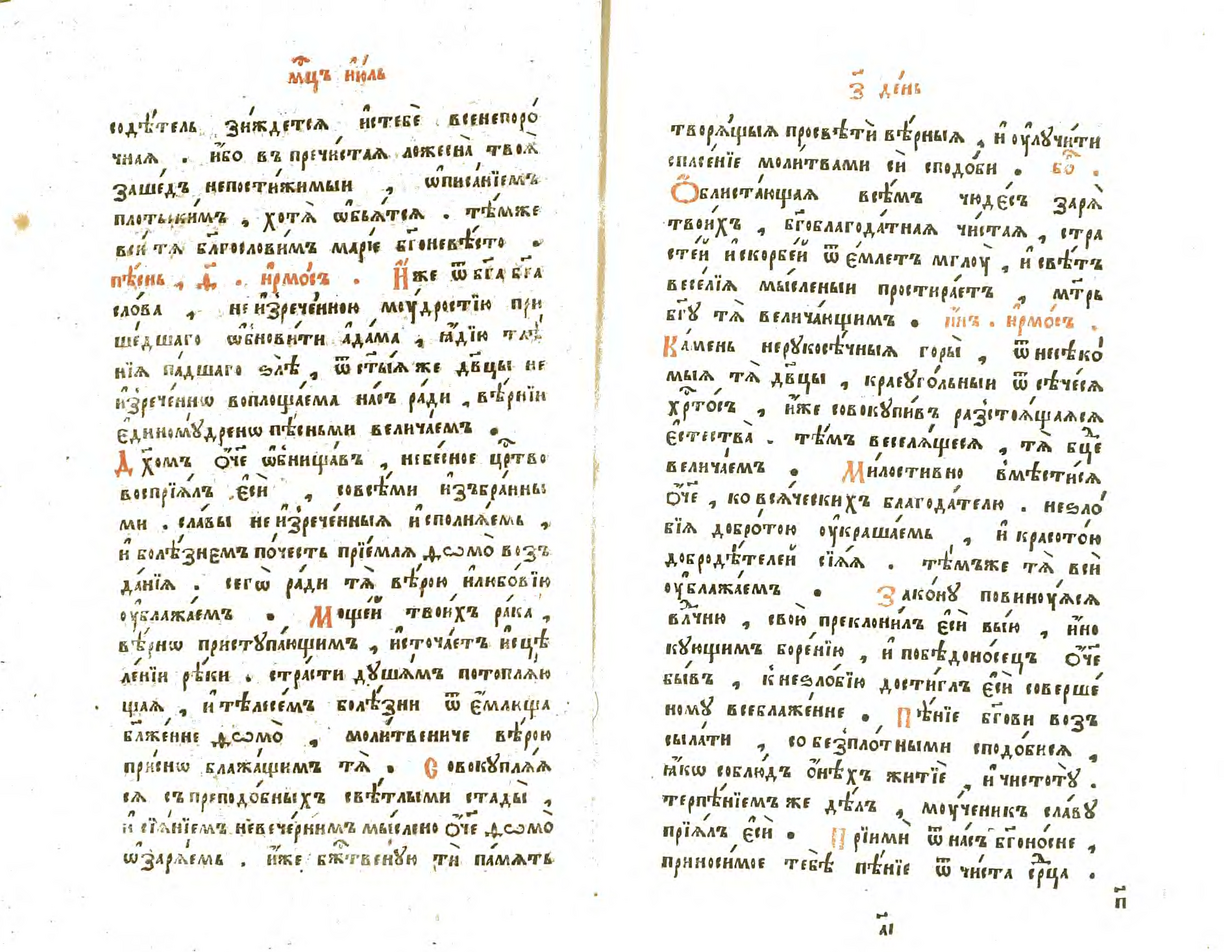 мц҃ъ і҆ю́ль
содѣ́тель зи́ждетсѧ и҆стебѐ всенепоро́
чнаѧ . и҆́бо въ пречи́стаѧ ложесна̀ твоѧ̀
заше́дъ непости́жимыи , ѡ҆писа́нїемъ
плотьски́мъ , хотѧ̀ ѡ҆бьѧ́тсѧ . тѣ́мже
вси́ тѧ бл҃гослови́мъ марі́е бг҃оневѣ́сто .
пѣ́снь , д҃ . і҆рмо́съ . И҆́же ѿ бг҃а бг҃а
сло́ва , неи҆зрече́нною мѹ́дростїю при
ше́дшаго ѡ҆бнови́ти а҆да́ма , ꙗ҆́дїю тлѣ́
нїѧ па́дшаго ѕлѣ̀ , ѿ ст҃ы́ѧже дв҃цы не
и҆зрече́ннѡ воплоща́ема на́съ ра́ди , вѣ́рнїи
є҆диномꙋ́дренѡ пѣ́сньми велича́емъ .
Дх҃омъ ѻ҆́ч҃е ѡ҆бнища́въ , небе́сное црⷭ҇тво
воспрїѧ́лъ є҆сѝ , совсѣ́ми и҆зъбра́нны
ми . сла́вы неи҆зрече́нныѧ и҆сполнѧ́емь ,
и҆ болѣ́знемъ по́честь прїе́млѧ ѳѡмо̀ возъ
да́нїѧ . сегѡ̀ ра́ди тѧ̀ вѣ́рою и҆любо́вїю
ѹ҆блажа́емъ . Моще́й твои́хъ ра́ка ,
вѣ́рнѡ приступа́ющимъ , и҆сточа́етъ и҆сцѣ
ле́нїи рѣ́ки . стра́сти дꙋша́мъ потоплѧ́ю
щаѧ , и҆ тѣлесе́мъ болѣ́зни ѿ є҆́млюща
бл҃же́нне ѳѡмо̀ , моли́твениче вѣ́рою
при́снѡ блажа́щимъ тѧ̀ . Совокуплѧ́ѧ
сѧ съ преподо́бныхъ свѣ́тлыми стады̀ ,
и҆ сїѧ́нїемъ невече́рнимъ мы́слено ѻ҆́ч҃е ѳѡмо̀
ѡ҆зарѧ́емь . и҆́же бжⷭ҇твеную ти̏ па́мѧть
з҃ де́нь
творѧ́щыѧ просвѣтѝ вѣ́рныѧ , и҆ ѹ҆лучи́ти
спасе́нїе моли́твами сѝ сподо́би . бо҃ .
Ѻ҆блиста́ющаѧ всѣ́мъ чюде́съ зарѧ̀
твои́хъ , бг҃облагода́тнаѧ чи́стаѧ , стра
сте́й и҆скорбе́й ѿ є҆́млетъ мглѹ̀ , и҆ свѣ́тъ
весе́лїѧ мы́сленыи простира́етъ , мт҃рь
бг҃ꙋ тѧ̀ велича́ющимъ . и҆́нъ . і҆рмо́съ .
Ка́мень нерукосѣ́чныѧ горы̀ , ѿ несѣко́
мыѧ тѧ̀ дв҃цы , краеуго́льныи ѿ сѣ́чесѧ
хрⷭ҇то́съ , и҆́же совокупи́въ разстоѧ́щаѧсѧ
є҆стества̀ . тѣ́мъ веселѧ́щесѧ , тѧ̀ бц҃е
велича́емъ . Ми́лостивно вмѣсти́сѧ
ѻ҆́ч҃е , ко всѧ́ческихъ благода́телю . неѕло́
бїѧ добро́тою ѹ҆краша́емь , и҆ красото́ю
добродѣ́телей сїѧ́ѧ . тѣ́мъже тѧ̀ всѝ
ѹ҆блажа́емъ . Зако́нꙋ повинѹ́ѧсѧ
вл҃чню , свою̀ преклони́лъ є҆сѝ вы́ю , и҆но́
кующимъ боре́нїю , и҆ побѣдоно́сецъ ѻ҆́ч҃е
бы́въ , к неѕло́бїю дости́глъ є҆сѝ соверше́
ному всеблаже́нне . Пѣ́нїе бг҃ови возъ
сыла́ти , со безпло́тными сподо́бисѧ ,
ꙗ҆́кѡ соблю́дъ ѻ҆нѣ́хъ житїѐ , и҆ чистотꙋ̀ .
терпѣ́нїемъже дѣ́лъ , мѹ́ченикъ сла́вꙋ
прїѧ́лъ є҆сѝ . Прїимѝ ѿ на́съ бг҃оно́сне ,
приноси́мое тебѣ̀ пѣ́нїе ѿ чи́ста срⷣца .
п҃
а҃і